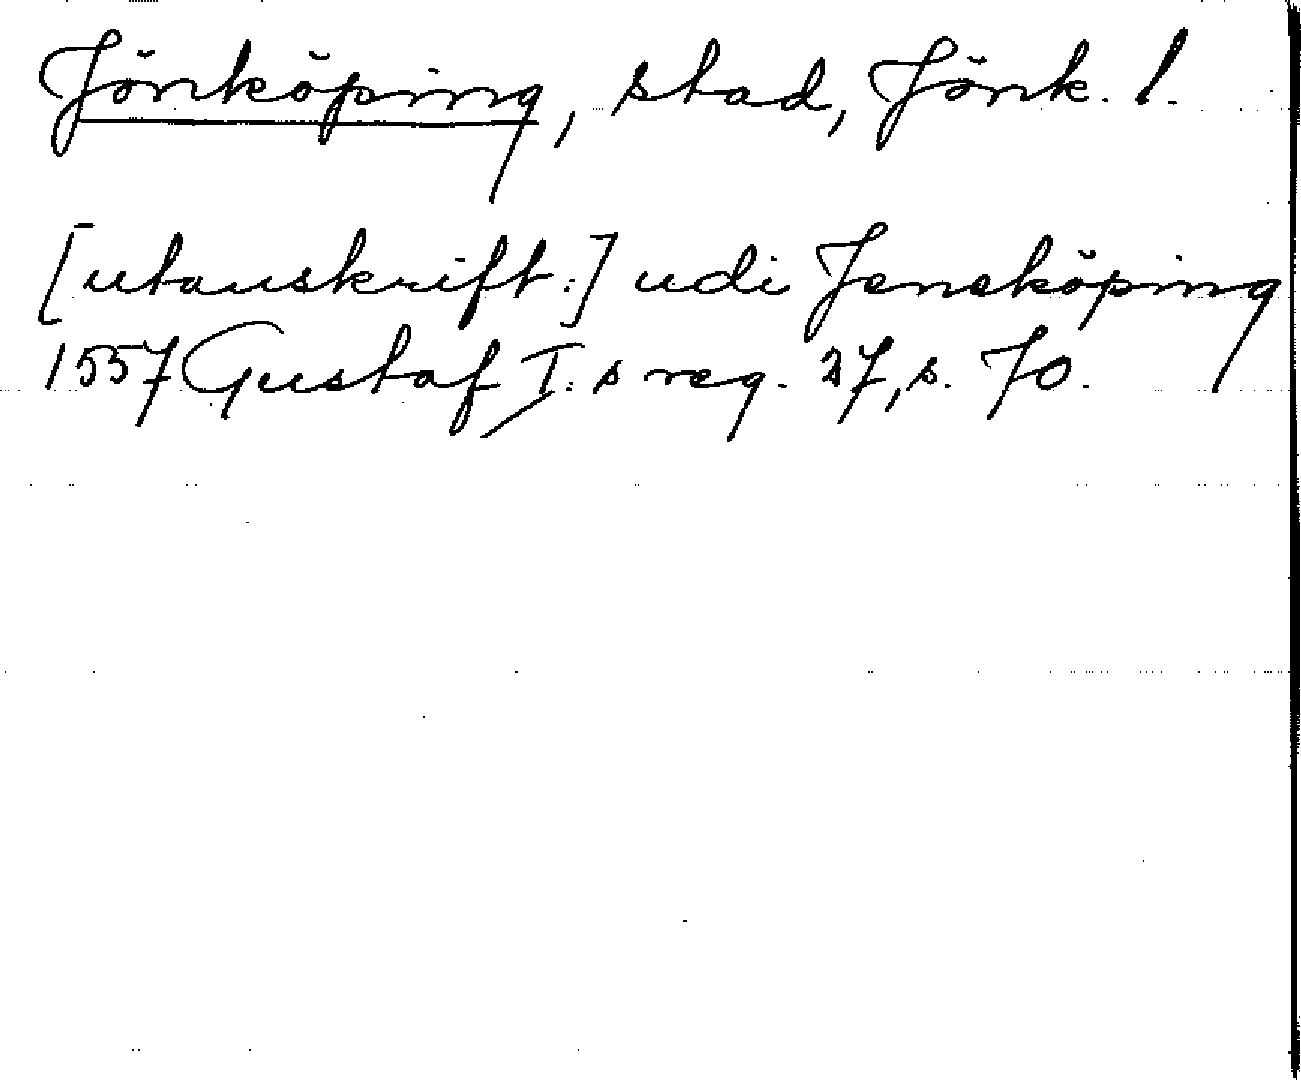 Jönköping, stad, Jönk. l.
[utanskrift:] udi Jeneköping
1557 Gustaf I:s reg. 27, s. 70.